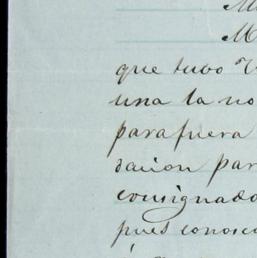 M
M
que tubo V
una la no
para fuera
sacion par
consignado
pues conosc